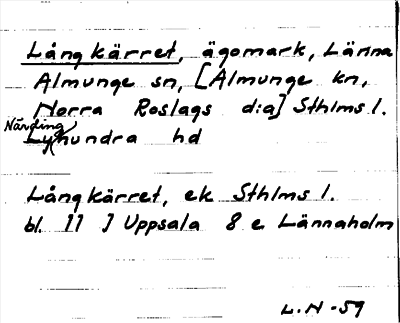 Långkärret, ägomark, Länna
Almunge sn, [Almunge kn,
Norra Roslags d:a] Sthlms l.
Närding
Lyhundra hd
Långkärret, ek Sthlms l.
bl. 11 I Uppsala 8 e Lännaholm
L.N -59